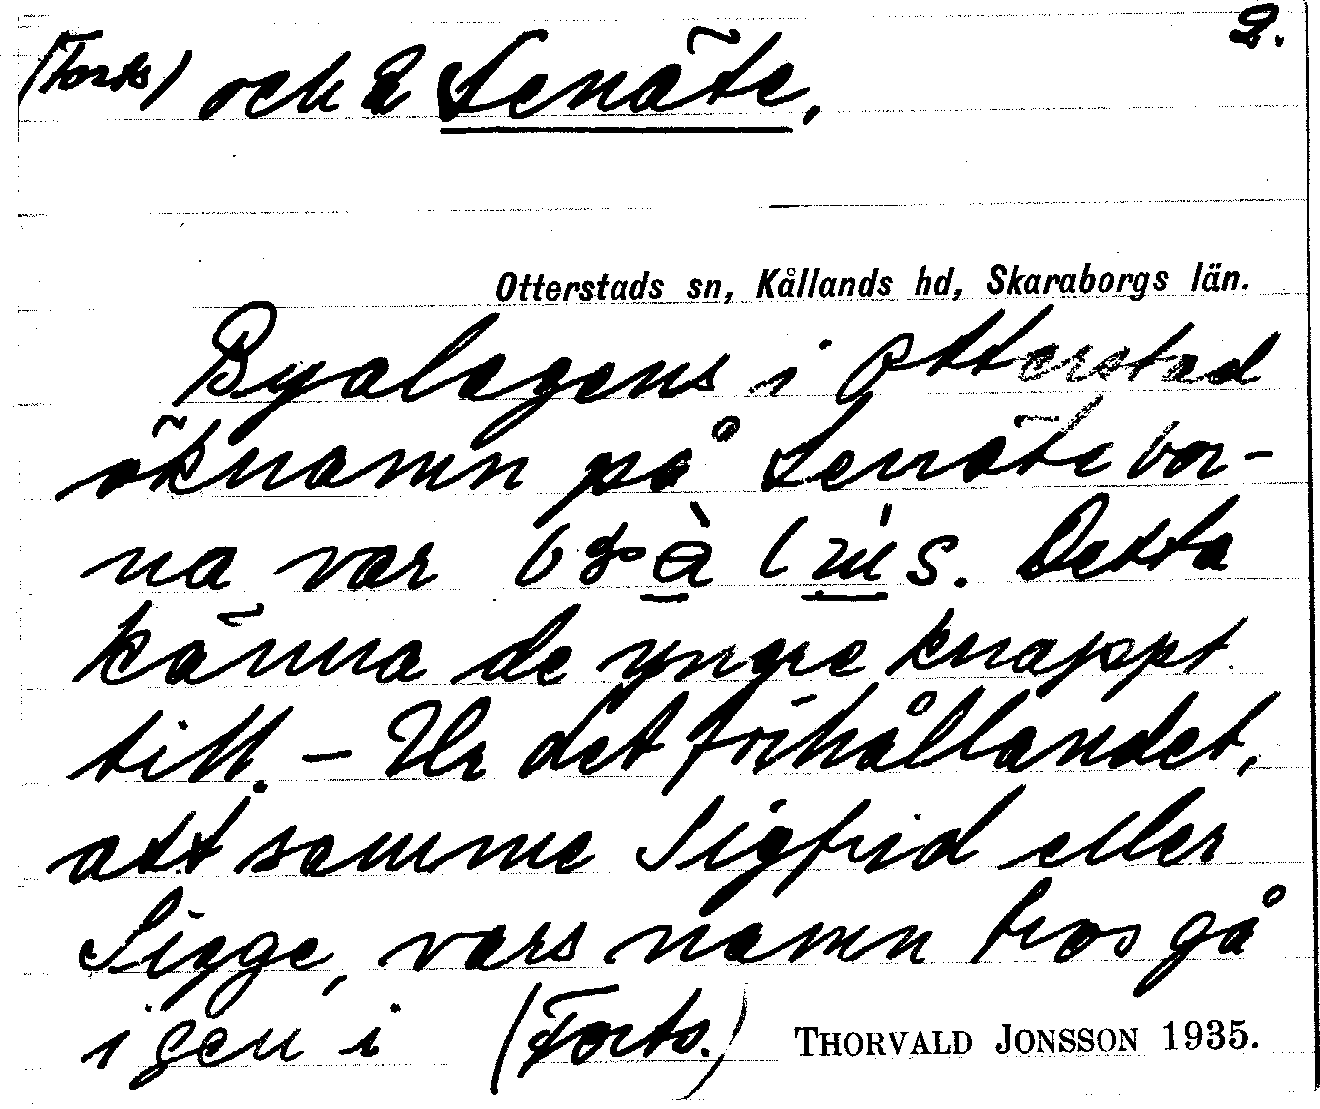 (Forts) och 2 Senäte. 2.
Otterstads sn, Kållands hd, Skaraborgs län.
Byalagens i Otterstad
öknamn på Senätebor-
na var Detta
känna de yngre knappt
till. – Ur det förhållandet,
att samme Sigfrid eller
Sigge, vars namn tros gå
igen i (Forts.) THORVALD JONSSON 1935.